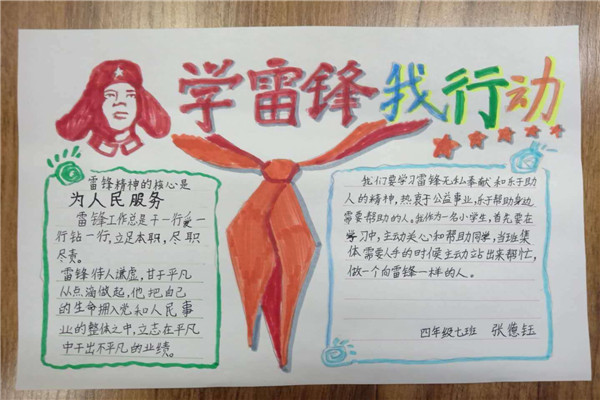 学雷锋我行动
雷锋精神的核心是
为人民服务
雷锋工作总是干一行爱一
行钻一行,立足本职,尽职
尽责。
雷锋待人谦虚,甘于平凡
从点滴做起,他把自己
的生命拥入党和人民事
业的整体之中,立志在平凡
中干出不平凡的业绩。
我们要学习雷锋无私奉献和乐于助
人的精神,热衷于公益事业,乐于帮助身边
需要帮助的人。我作为一名小学生,首先要在
学习中,主动关心和帮助同学,当班集
体需要人手的时候主动站出来帮忙,
做一个向雷锋一样的人。
四年级七班 张德钰